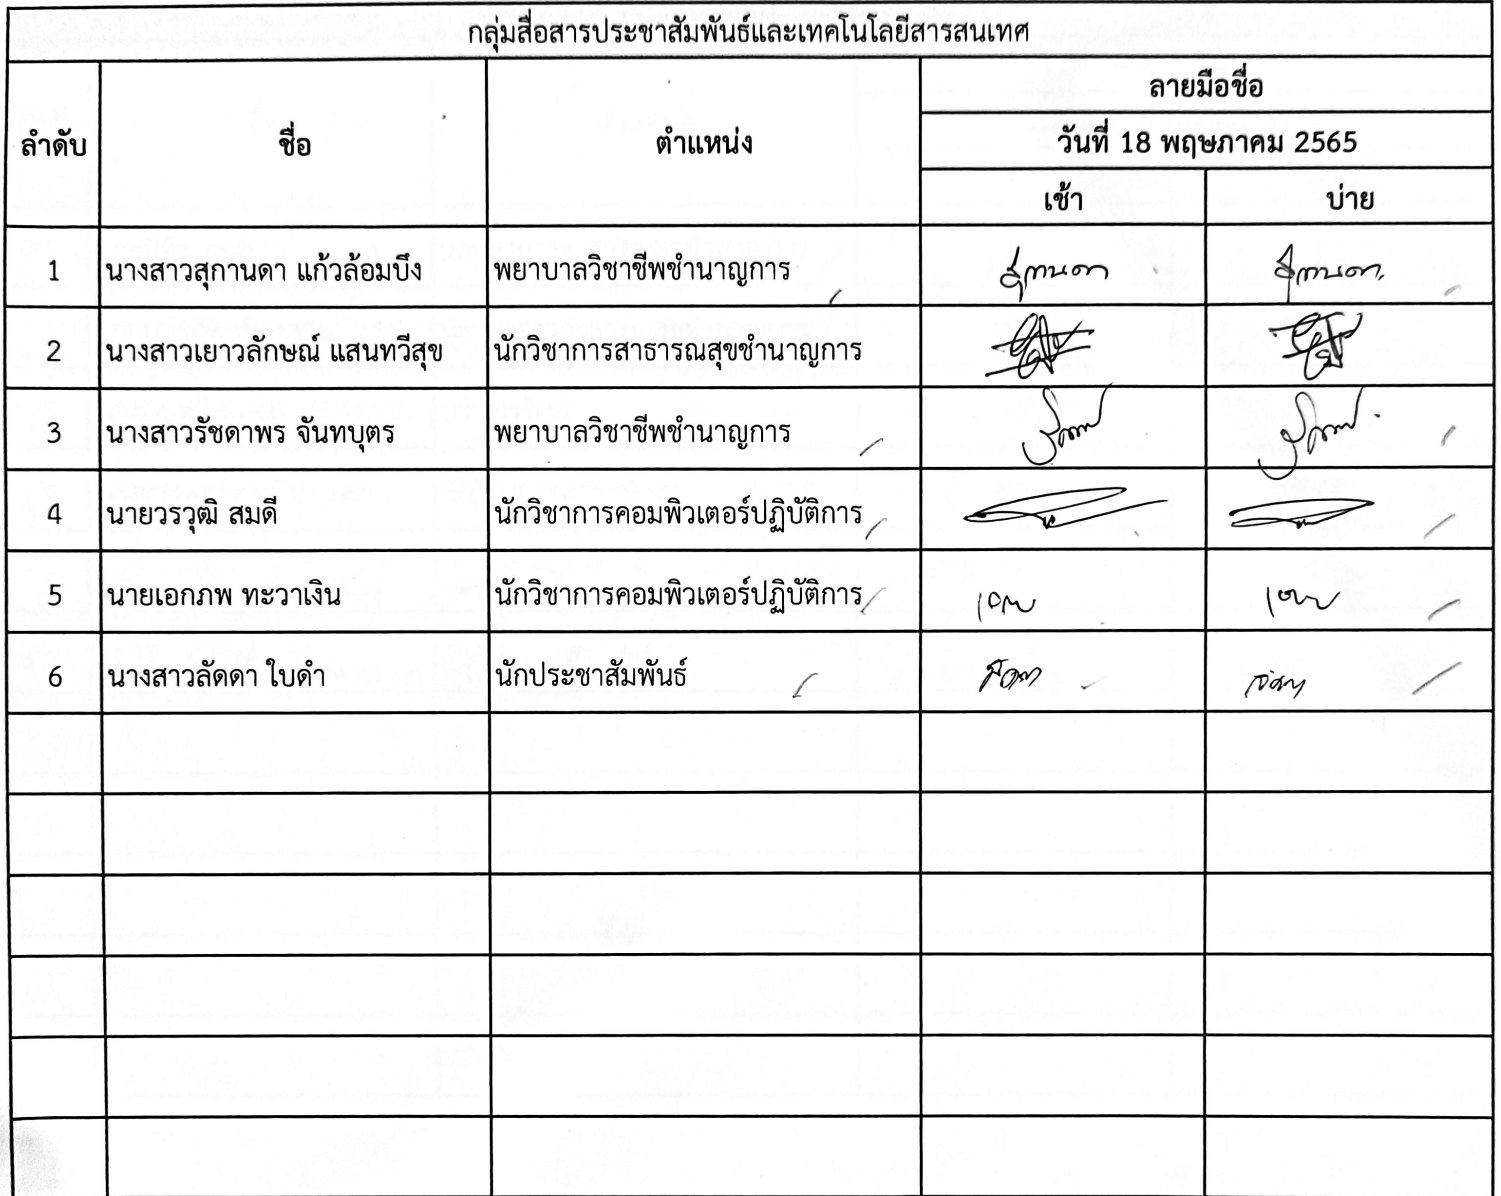 กลุ่มสื่อสารประชาสัมพันธ์และเทคโนโลยีสารสนเทศ
ลำดับ ชื่อ ตำแหน่ง ลายมือชื่อ
วันที่ 18 พฤษภาคม 2565
เช้า บ่าย
1 นางสาวสุกานดา แก้วล้อมบึง พยาบาลวิชาชีพชำนาญการ สุกานดา สุกานดา
2 นางสาวเยาวลักษณ์ แสนทวีสุข นักวิชาการสาธารณสุขชำนาญการ
3 นางสาวรัชดาพร จันทบุตร พยาบาลวิชาชีพชำนาญการ
4 นายวรวุฒิ สมดี นักวิชาการคอมพิวเตอร์ปฏิบัติการ
5 นายเอกภพ ทะวาเงิน นักวิชาการคอมพิวเตอร์ปฏิบัติการ
6 นางสาวลัดดา ใบดำ นักประชาสัมพันธ์